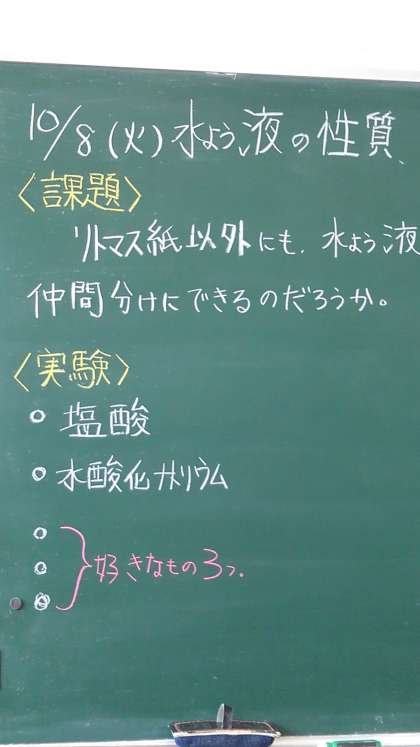 10/8(火)水よう液の性質
〈課題〉
リトマス紙以外にも、水よう液
仲間分けにできるのだろうか。
〈実験〉
○ 塩酸
○ 水酸化カリウム
○
○ 好きなもの3つ。
○